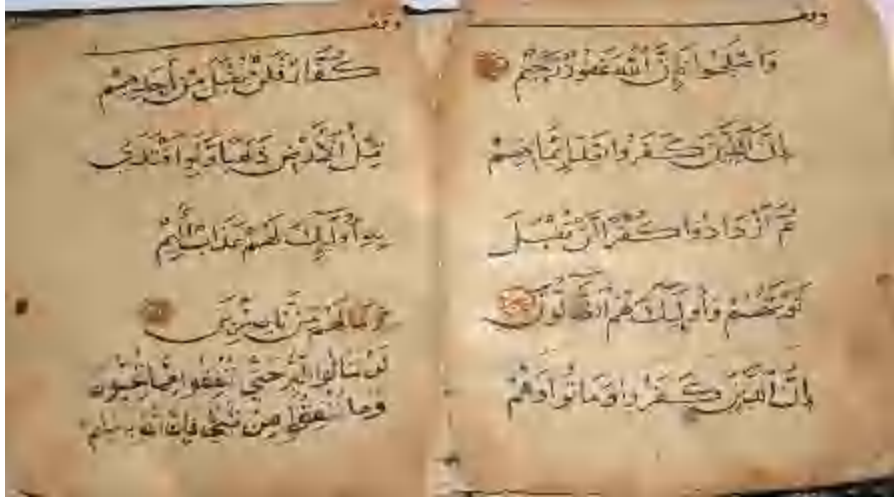 وقف
وَأَصْلَحُوا فَإِنَّ ٱللَّهَ غَفُورٌ رَّحِيمٌ
إِنَّ ٱلَّذِينَ كَفَرُوا بَعْدَ إِيمَانِهِمْ
ثُمَّ ٱزْدَادُوا كُفْرًا لَّن تُقْبَلَ
تَوْبَتُهُمْ وَأُولَٰئِكَ هُمُ ٱلضَّالُّونَ
إِنَّ ٱلَّذِينَ كَفَرُوا وَمَاتُوا وَهُمْ
وقف
كُفَّارٌ فَلَن يُقْبَلَ مِنْ أَحَدِهِم
مِّلْءُ ٱلْأَرْضِ ذَهَبًا وَلَوِ ٱفْتَدَىٰ
بِهِ أُولَٰئِكَ لَهُمْ عَذَابٌ أَلِيمٌ
وَمَا لَهُم مِّن نَّاصِرِينَ
لَن تَنَالُوا ٱلْبِرَّ حَتَّىٰ تُنفِقُوا مِمَّا تُحِبُّونَ
وَمَا تُنفِقُوا مِن شَيْءٍ فَإِنَّ ٱللَّهَ بِهِ عَلِيمٌ